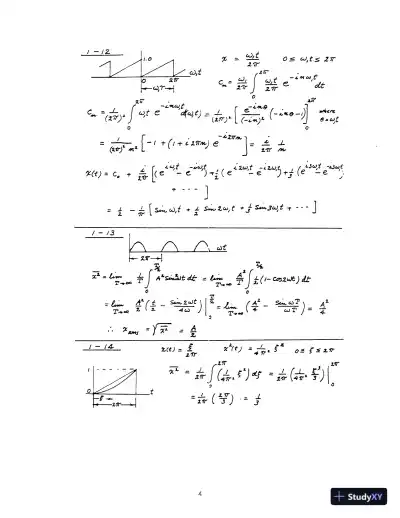 1-12
1.0
0 2π ω,t
ω,T
x = ω,t / 2π 0 ≤ ω,t ≤ 2π
Cₙ = ω,/2π ∫₀^2π ω,t/2π e^-inω,t dt
Cₙ = 1/(2π)² ∫₀^2π ω,t e^-inω,t d(ω,t) = 1/(2π)² [ e^-inθ/(-in)² (-inθ-1) ]₀^2π where θ=ω,t
= 1/(2π)² n² [ -1 + (1 + i2πn) e^-i2πn ] = i/2π 1/n
x(t) = C₀ + i/2π [ (e^iω,t - e^-iω,t) + 1/2 (e^i2ω,t - e^-i2ω,t) + 1/3 (e^i3ω,t - e^-i3ω,t)
+ --- ]
= 1/2 - 1/π [ sin ω,t + 1/2 sin 2ω,t + 1/3 sin 3ω,t + --- ]
1-13
ωt
2π
x² = lim T→∞ 1/T ∫₀^T/2 A² sin²ωt dt = lim T→∞ A²/T ∫₀^T/2 1/2 (1-cos2ωt) dt
= lim T→∞ A²/T ( t/2 - sin 2ωt/4ω ) |₀^T/2 = lim T→∞ ( A²/4 - sin ωT/ωT ) = A²/4
∴ x rms = √x² = A/2
1-14
x(t) = ξ/2π x²(t) = 1/4π² ξ² 0 ≤ ξ ≤ 2π
1
0 t
ξ
2π
x² = 1/2π ∫₀^2π ( 1/4π² ξ² ) dξ = 1/2π ( 1/4π² ξ³/3 ) |₀^2π
= 1/2π ( 2π/3 ) = 1/3
4
StudyXY